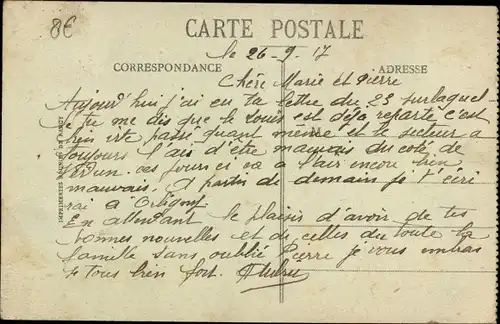 8€
CARTE POSTALE
le 26-9-17
CORRESPONDANCE
ADRESSE
Chère Marie et Pierre
Aujourd'hui j'ai eu ta lettre du 23 sur laquel
tu me dis que le Louis est déja reparte c'est
bien vite passé quant meme et le secteur a
toujours l'ais d'être mauvais du coté de
Verdun. ces jours ci ca a l'air encou bien
mauvais. A partir de demain je t'écri
rai à Origny
En attendant le plaisir d'avoir de tes
bonnes nouvelles et de celles du toute la
famille sans oublié Pierre je vous embras
tous bien fort.